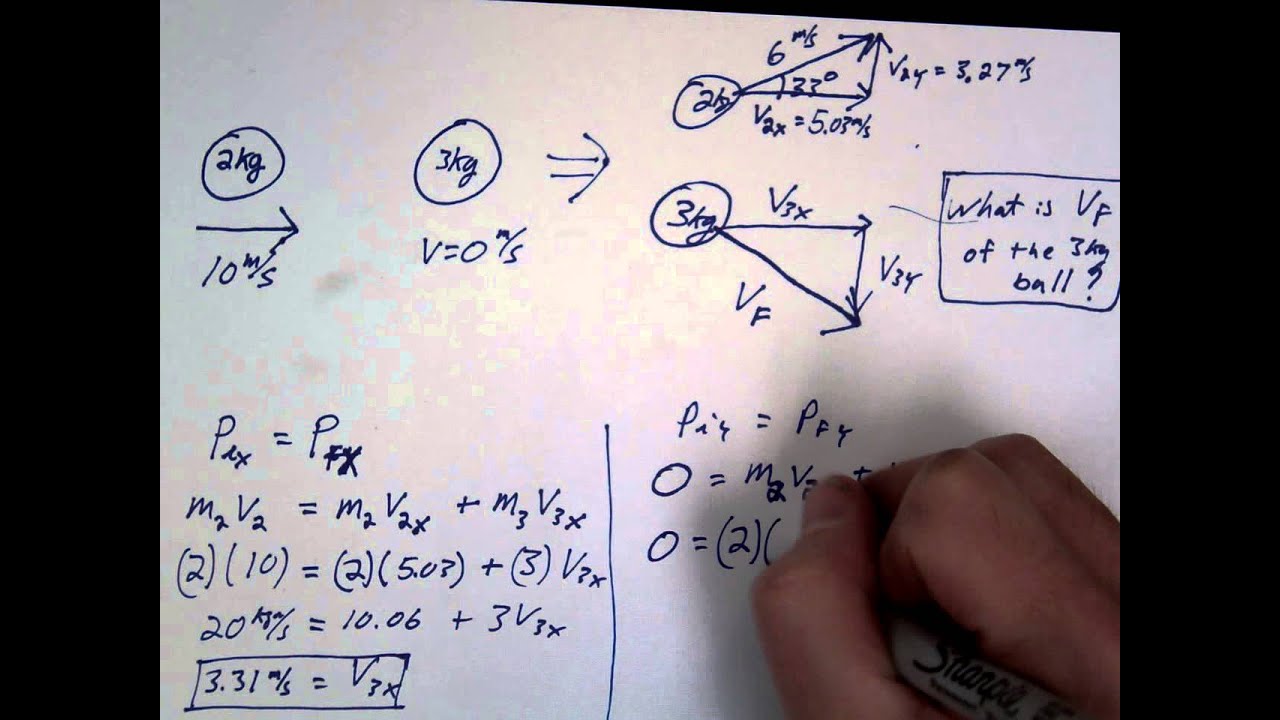 6 m/s
33°
V2y = 3.27 m/s
2kg
V2x = 5.03 m/s
2kg
3kg
10 m/s
V=0 m/s
3kg
V3x
V3y
VF
What is VF
of the 3kg
ball?
Pix = PFx
m2V2 = m2V2x + m3V3x
(2)(10) = (2)(5.03) + (3)V3x
20 kgm/s = 10.06 + 3V3x
3.31 m/s = V3x
Piy = PFy
0 = m2V2 +
0 = (2)(
Sharpie